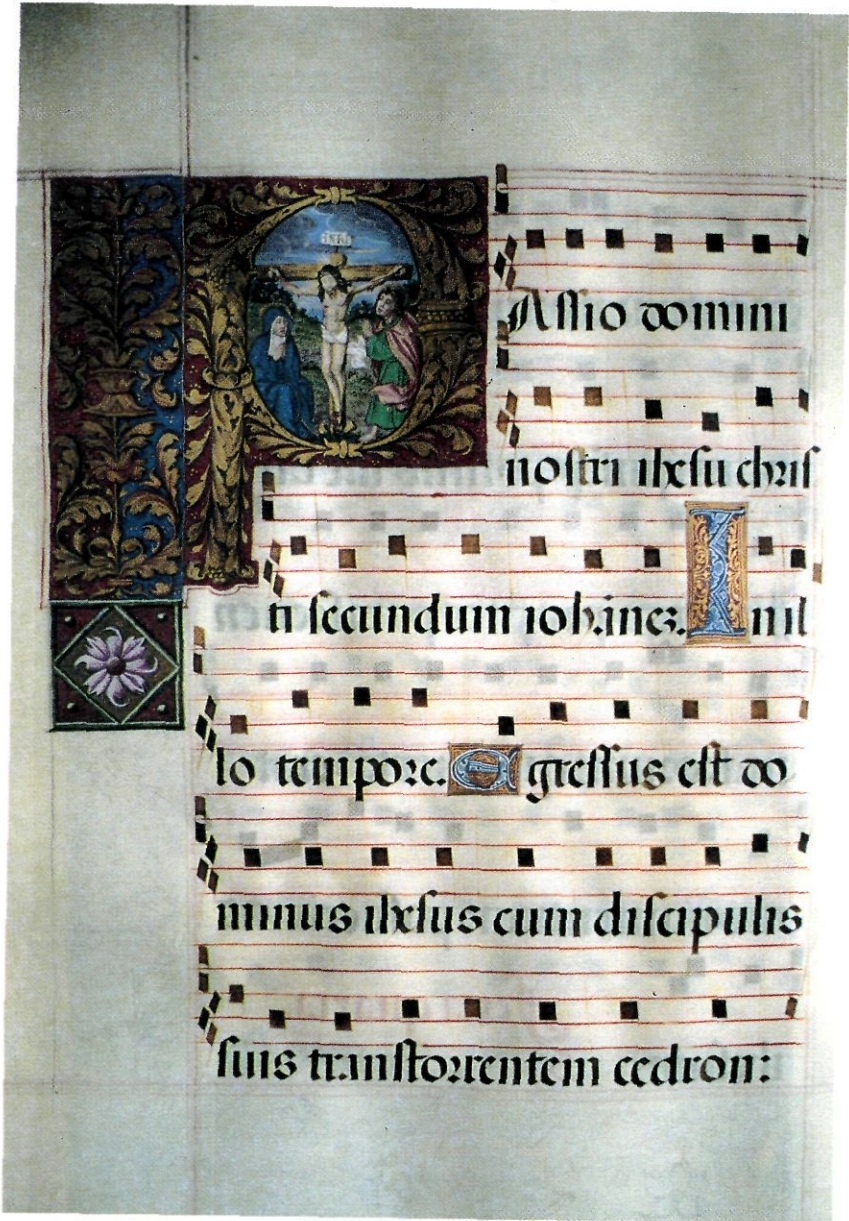 INRI
PAssio domini
nostri ihesu chris
ti secundum iohanez. In il
lo tempore. Egressus est do
minus ihesus cum discipulis
suis transtorrentem cedron: